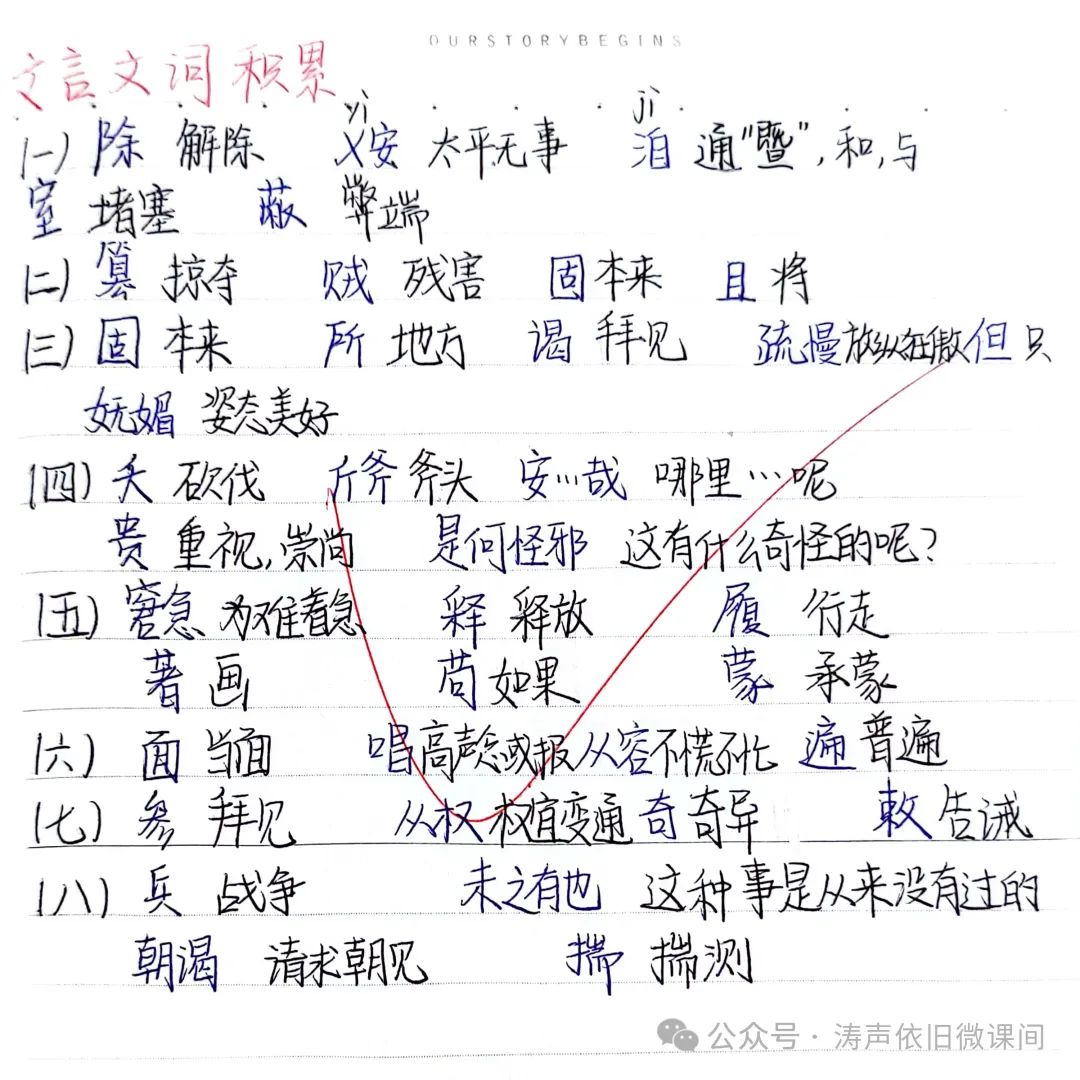 OURSTORYBEGINS
文言文词积累
yì jì
(一) 除 解除 乂安 太平无事 洎 通"暨",和,与
窒 堵塞 蔽 弊端
(二) 篡 掠夺 贼 残害 固 本来 且 将
(三) 固 本来 所 地方 谒 拜见 疏慢 放纵狂傲 但 只
妩媚 姿态美好
(四) 砍伐 斤斧 斧头 安…哉 哪里…呢
贵 重视,崇尚 是何怪邪 这有什么奇怪的呢?
(五) 窘急 为难着急 释 释放 履 行走
著 画 苟 如果 蒙 承蒙
(六) 面 当面 唱 高声念或报 从容 不慌不忙 遍 普遍
(七) 参 拜见 从权 权宜变通 奇 奇异 敕 告诫
(八) 兵 战争 未之有也 这种事是从来没有过的
朝渴 请求朝见 揣 揣测
公众号·涛声依旧微课间